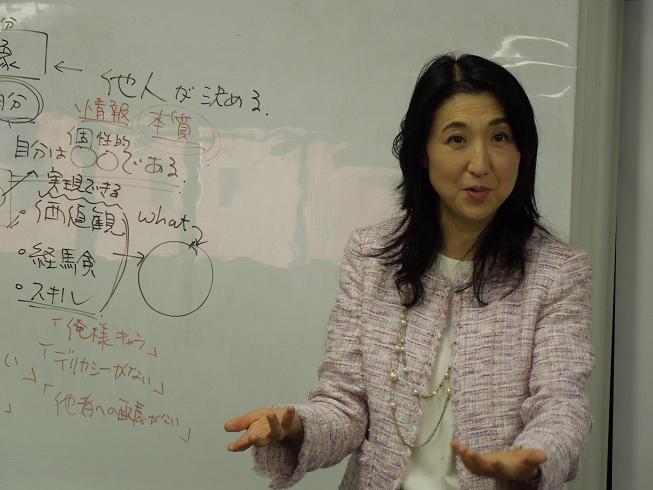 分
象
← 他人が決める.
自分
情報 本質
自分は個性的である
実現できる
・価値観 What?
・経験
・スキル
「俺様きょう」
「デリカシーがない」
い」
「他者への配慮がない」
」